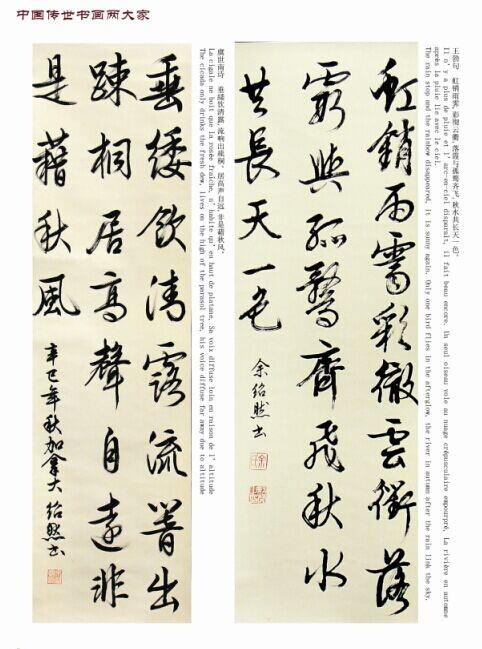 中国传世书画两大家
王勃句 虹销雨霁，彩彻云衢，落霞与孤鹜齐飞，秋水共长天一色。
Il n'y a plus de pluie et l' arc-en-ciel disparaît, il fait beau encore. Un seul oiseau vole au nuage crépusculaire empourpré, La rivière en automne
après la pluie lie avec le ciel.
The rain stop and the rainbow disappeared, it is sunny again. Only one bird flies in the afterglow, the river in autumn after the rain link the sky.
虹銷雨霽彩徹雲衢落
霞與孤鶩齊飛秋水
共長天一色
余紹然書
虞世南诗 垂緌饮清露，流响出疏桐。居高声自远，非是藉秋风。
La cigale ne boit que la rosée fraîche, n' habite qu' en haut de platane. Sa voix diffuse loin en raison de l' altitude
The cicada only drinks the fresh dew, lives on the high of the parasol tree, his voice diffuse far away due to altitude
垂緌飲清露流響出
踈桐居高聲自遠非
是藉秋風
辛巳年秋加拿大紹然書